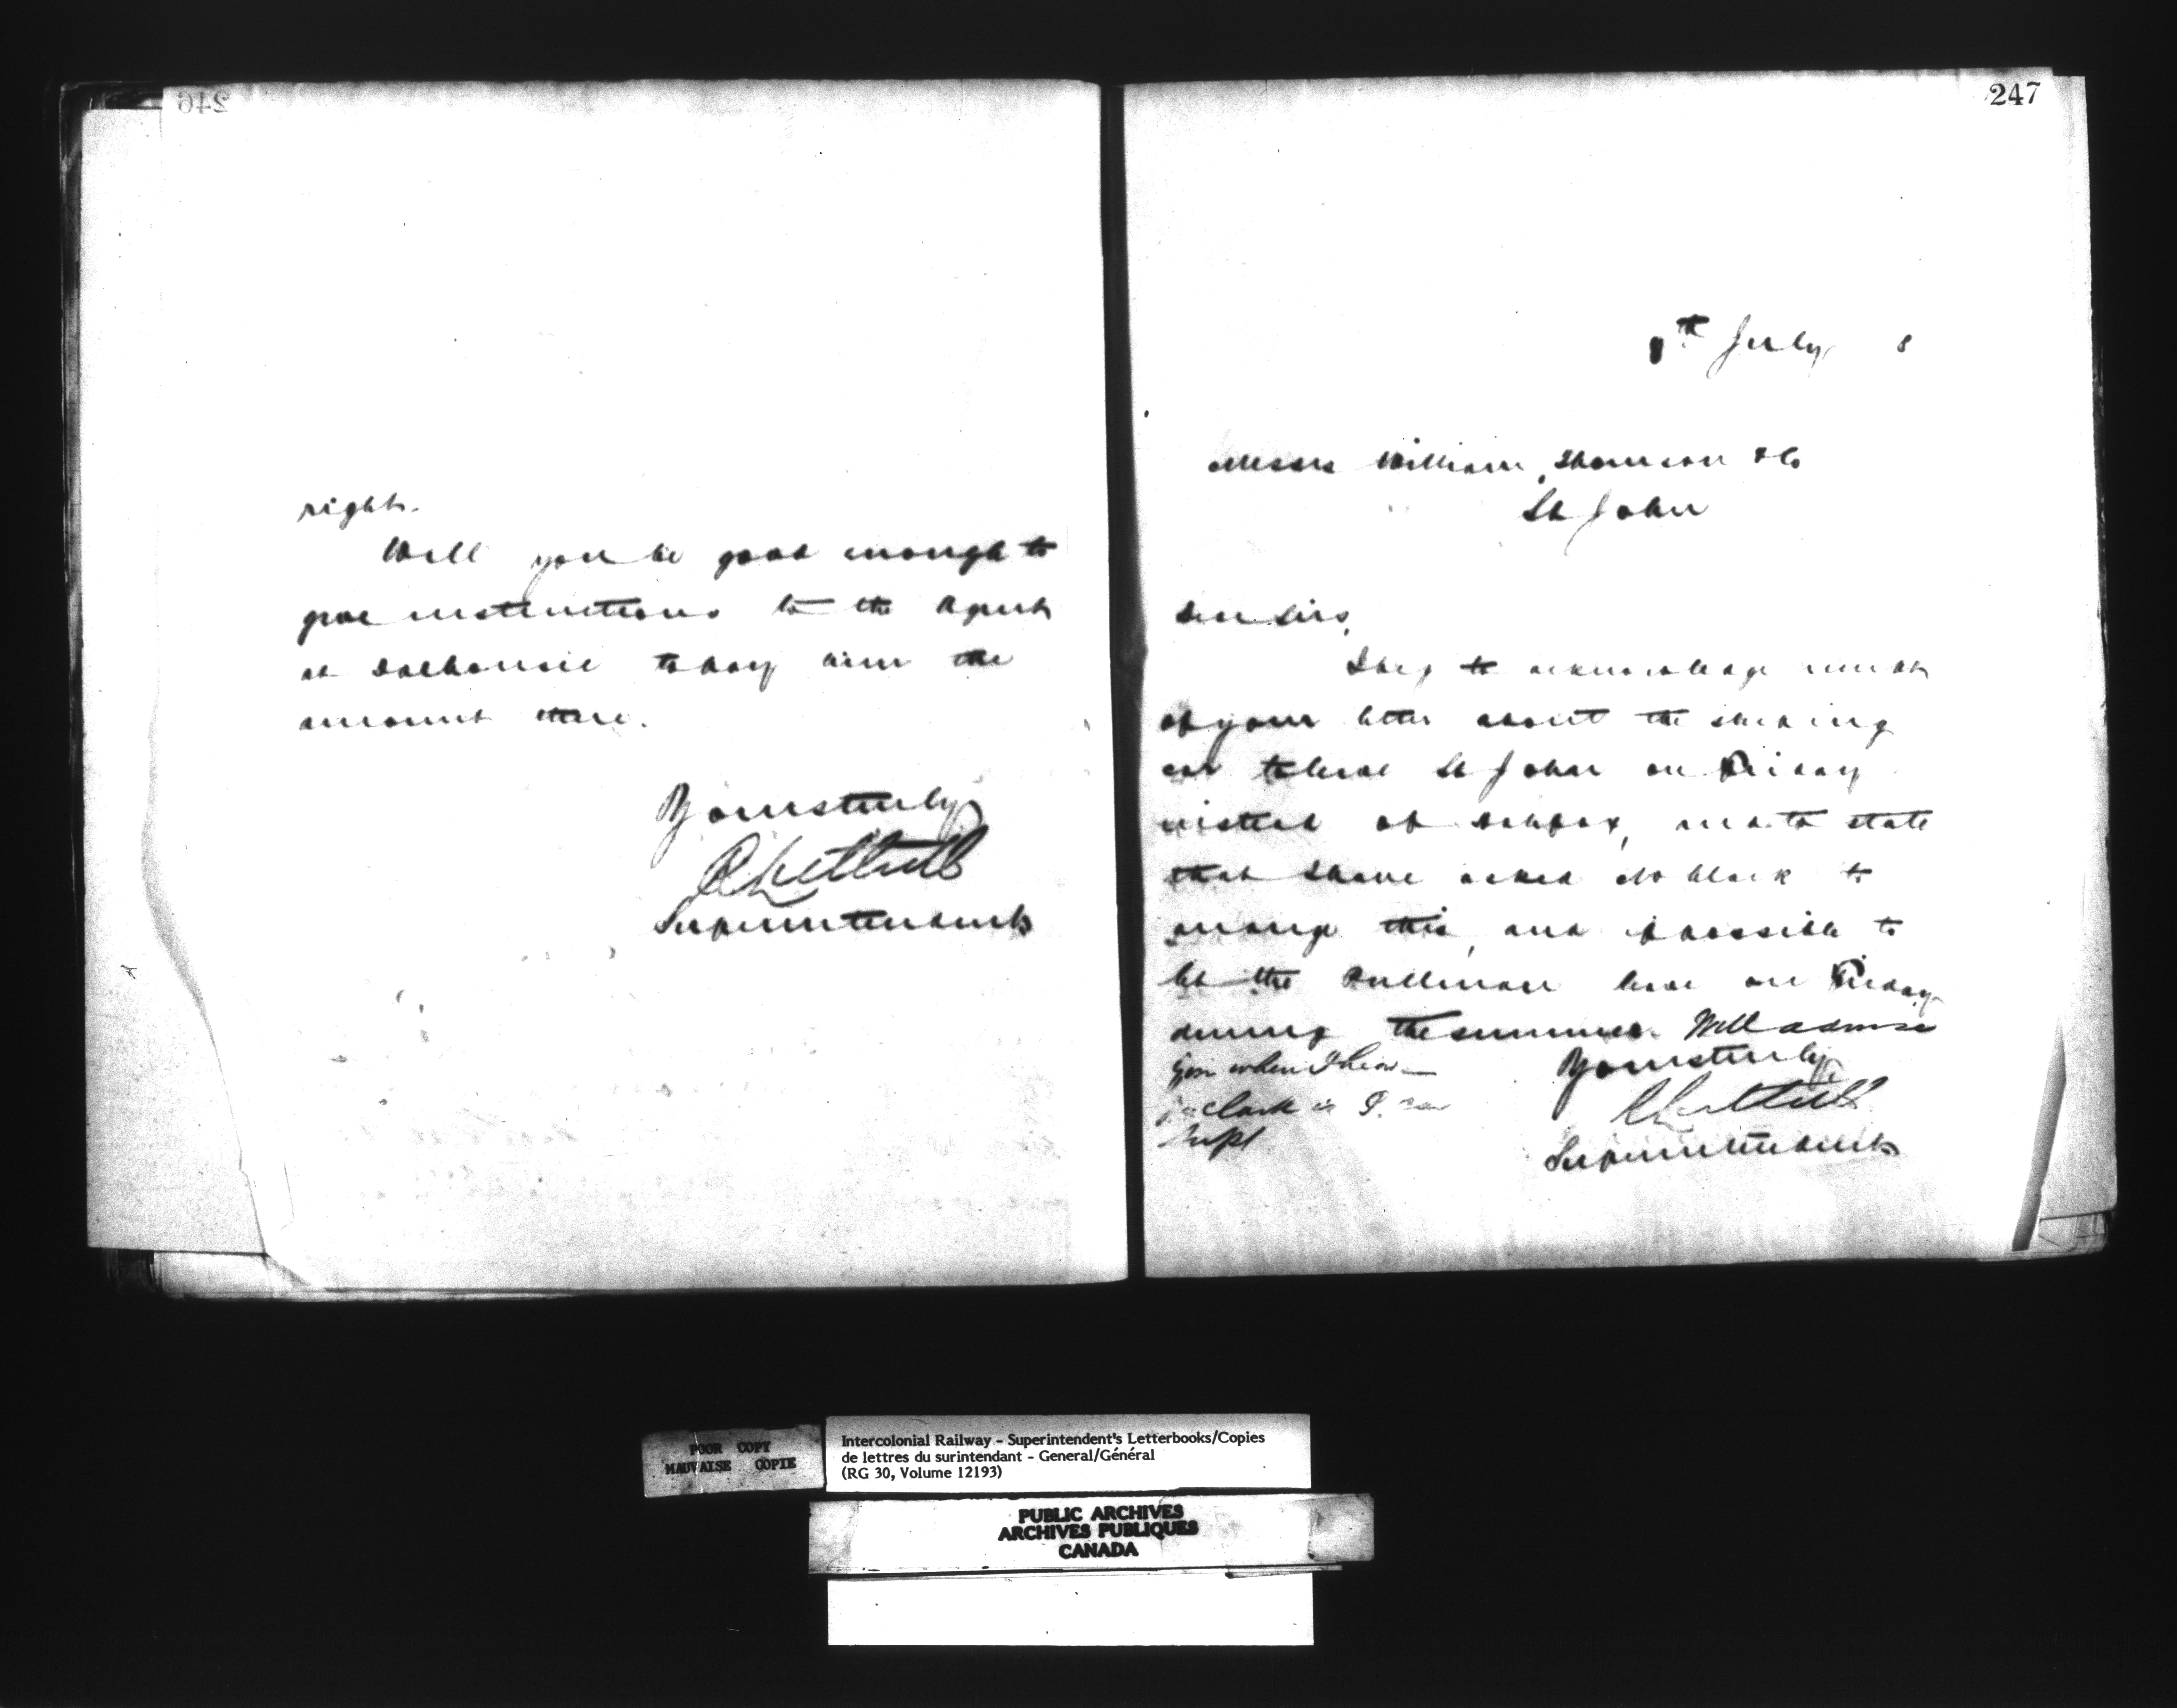 246
right.
Will you be good enough to
give instructions to the Agent
at Dalhousie to pay him the
amount there.
Yours truly
Superintendent
247
8th July 8
Messrs William Thomson & Co
St John
Dear Sirs,
I beg to acknowledge receipt
of your letter about the sleeping
car to leave St John on Friday
instead of Halifax, and to state
that I have asked Mr Clark to
arrange this, and if possible to
let the Pullman leave on Friday
during the summer. Will advise
you when I hear —
Mr Clark is P. car
Supt
Yours truly
Superintendent
POOR COPY
MAUVAISE COPIE
Intercolonial Railway - Superintendent's Letterbooks/Copies
de lettres du surintendant - General/Général
(RG 30, Volume 12193)
PUBLIC ARCHIVES
ARCHIVES PUBLIQUES
CANADA